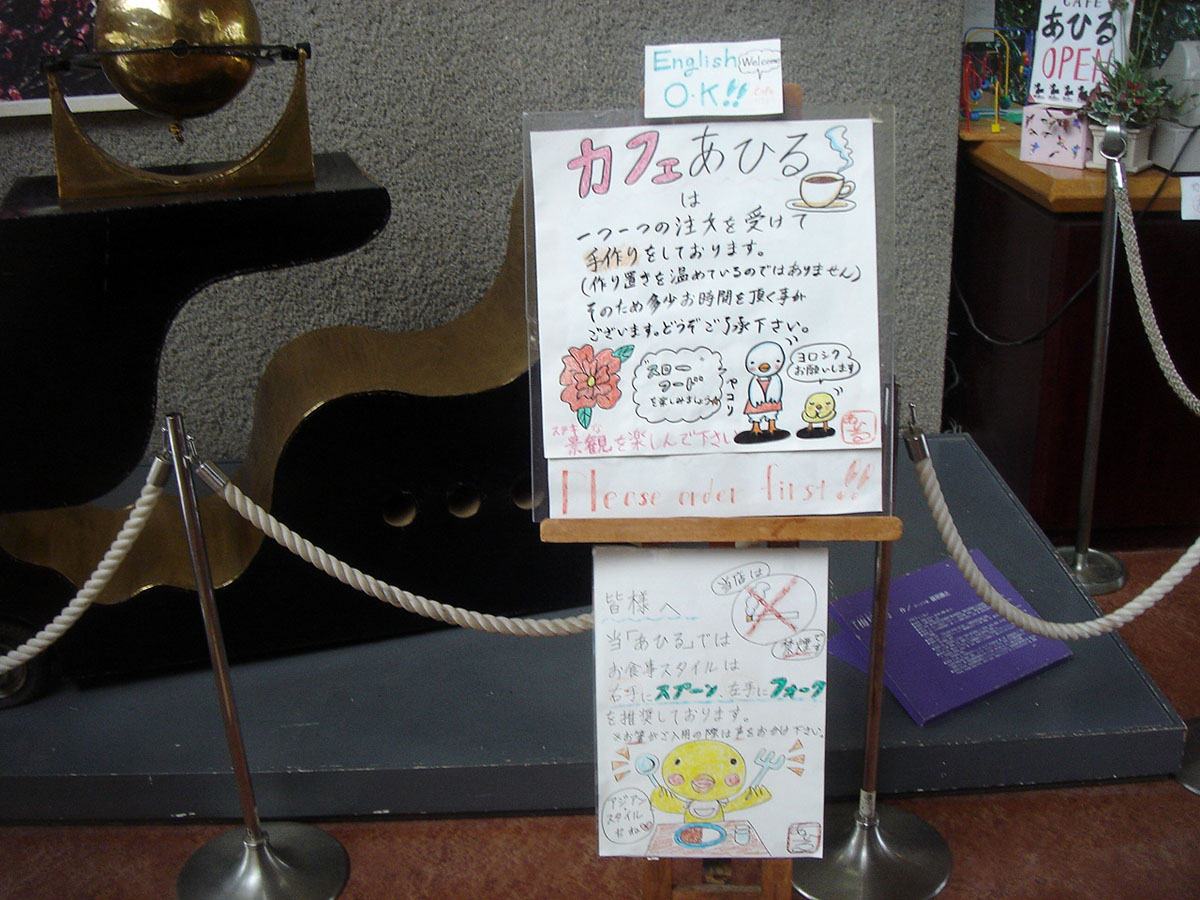 CAFE
あひる
OPEN
English
Welcome
O・K!!
カフェあひる
は
一つ一つの注文を受けて
手作りをしております。
(作り置きを温めているのではありません)
そのため多少お時間を頂く事が
ございます。どうぞご了承下さい。
スロー
フード
を楽しみましょう
ペコリ
ヨロシク
お願いします
ステキな
景観を楽しんで下さい
Please order first!!
当店は
禁煙です
皆様へ
当「あひる」では
お食事スタイルは
右手にスプーン、左手にフォーク
を推奨しております。
※お箸がご入用の際は声をおかけ下さい。
アジアン
スタイル
だね